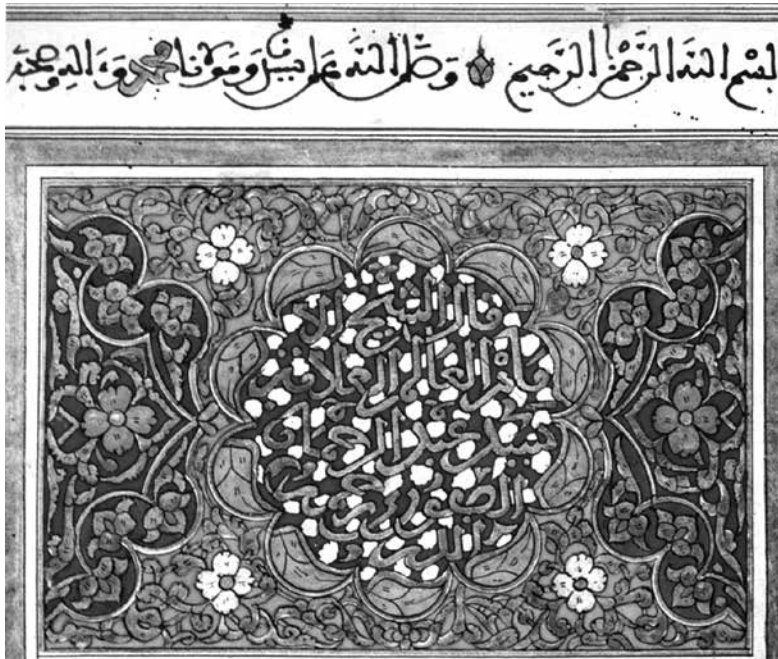 بسم الله الرحمن الرحيم وصلى الله على سيدنا ومولانا محمد وءاله وصحبه
قال الشيخ الا
مام العالم العلامة
سيدي عبد الرحمان
الصفوري رحمه
الله